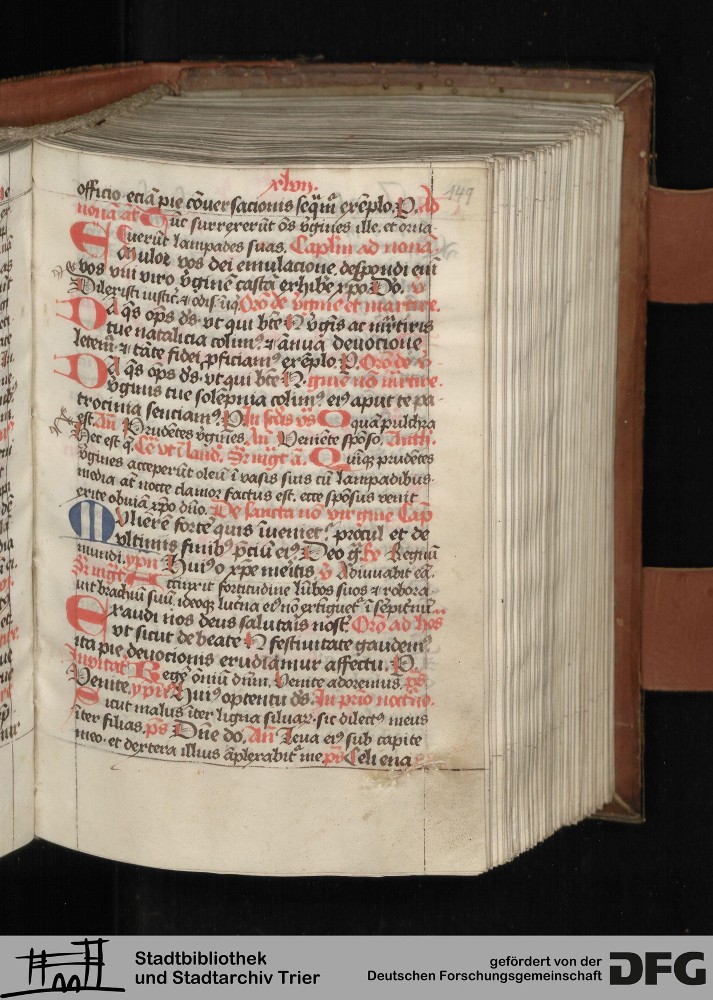 xlvii.
149
officio eciā pie cōuersacionis seqm̄ exēplo. P. Ad
nonā añ Tūc surrexerūt ōs v̄gines ille. et orna
uerūt lampades suas. Caplm ad nonā.
Emulor vos dei emulacione. despondi eni
vos vni viro v̄ginē castā exhibe xpo Do. v
Dilexisti iustic̄ & odis̄ iiq̄ Orō de v̄gine et martire.
Da qs ops ds. vt qui bte N v̄gis ac mr̄tiris
tue natalicia colim9 & ānua deuocione
letem̄. & tāte fidei pficiam9 exēplo. P. Orō de v̄
Da qs ops ds. vt qui bte N. gine nō mr̄tire.
v̄ginis tue solēpnia colim9 ei9 aput te pa
trocinia senciam9. P In scd̄s vs̄ O quā pulchra
est. Añ Prudētes v̄gines. Añ Veniēte spōso. Anth.
Hec est q̄. Cō vt ī laud. Sr mgt̄ ā. Quīq prudētes
v̄gines acceperūt oleū ī vasis suis cū lampadibus.
media at̄ nocte clamor factus est. ecce spōsus venit
exite obuiā xpo dn̄o. De sancta nō virgine Cap
Muliere forte quis īueniet procul et de
vltimis finib9 p̄ciū ei9. Deo ḡ. Rx Regnū
mundi. ypn̄ Hui9 o xpe meritis v̄ Adiuuabit eā.
Sr mgt̄ Accinxit fortitudine lūbos suos & robora
uit brachiū suū. ideoqz lucna ei9 nō extiguet ī sēpitnū.
Exaudi nos deus salutaris nost̄. Orō ad hos
vt sicut de beate N festiuitate gaudem9
ita pie deuocionis erudiamur affectu. P.
Inuitat Regē oniū dn̄m. Venite adoremus. ps
Venite. ypn̄ Hui9 optentu ds. In prio noctno.
Sicut malus īter ligna siluar. sic dilect9 meus
īter filias. ps Dn̄e do. Añ Leua ei9 sub capite
meo. et dextera illius āplexabit me. ps Celi ena
Stadtbibliothek
und Stadtarchiv Trier
gefördert von der
Deutschen Forschungsgemeinschaft
DFG